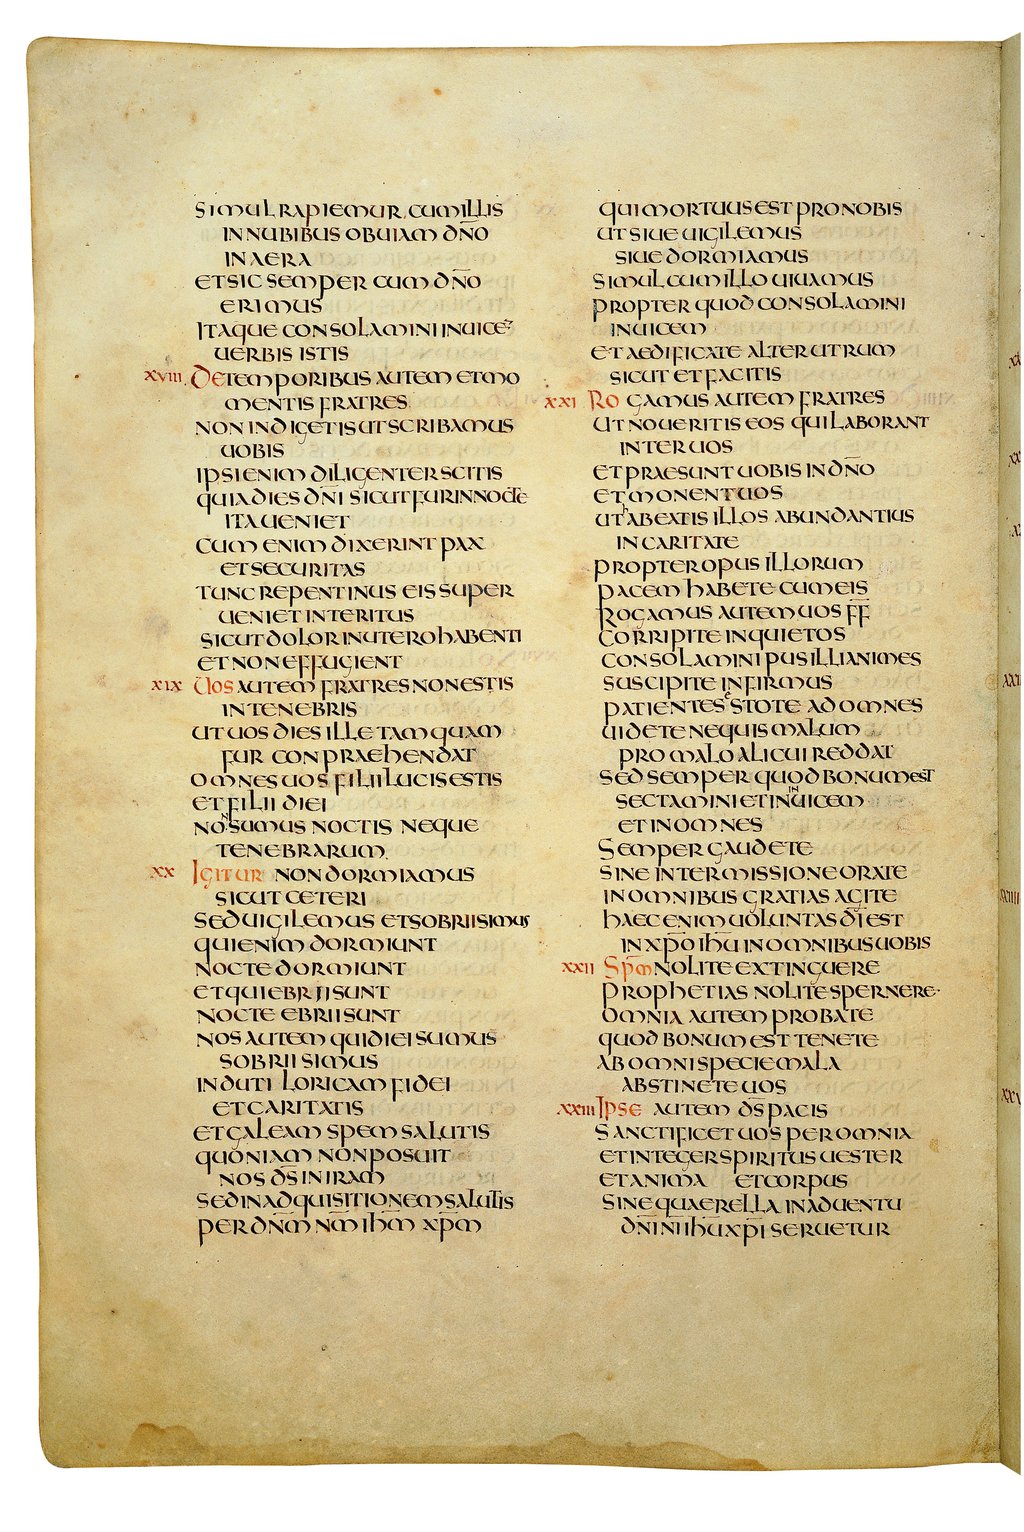 SIMUL RAPIEMUR CUM ILLIS
IN NUBIBUS OBUIAM DN̄O
IN AERA
ET SIC SEMPER CUM DN̄O
ERIMUS
ITAQUE CONSOLAMINI INUICE
UERBIS ISTIS
XVIII DE TEMPORIBUS AUTEM ET MO
MENTIS FRATRES
NON INDIGETIS UT SCRIBAMUS
UOBIS
IPSI ENIM DILIGENTER SCITIS
QUIA DIES DN̄I SICUT FUR IN NOCTE
ITA UENIET
CUM ENIM DIXERINT PAX
ET SECURITAS
TUNC REPENTINUS EIS SUPER
UENIET INTERITUS
SICUT DOLOR IN UTERO HABENTI
ET NON EFFUGIENT
XIX UOS AUTEM FRATRES NON ESTIS
IN TENEBRIS
UT UOS DIES ILLE TAMQUAM
FUR CONPRAEHENDAT
OMNES UOS FILII LUCIS ESTIS
ET FILII DIEI
NOᴺ SUMUS NOCTIS NEQUE
TENEBRARUM
XX IGITUR NON DORMIAMUS
SICUT CETERI
SED UIGILEMUS ET SOBRII SIMUS
QUI ENIM DORMIUNT
NOCTE DORMIUNT
ET QUI EBRII SUNT
NOCTE EBRII SUNT
NOS AUTEM QUI DIEI SUMUS
SOBRII SIMUS
INDUTI LORICAM FIDEI
ET CARITATIS
ET GALEAM SPEM SALUTIS
QUONIAM NON POSUIT
NOS DS̄ IN IRAM
SED IN ADQUISITIONEM SALUTIS
PER DN̄M N̄M IHM̄ XPM̄
QUI MORTUUS EST PRO NOBIS
UT SIUE UIGILEMUS
SIUE DORMIAMUS
SIMUL CUM ILLO UIUAMUS
PROPTER QUOD CONSOLAMINI
INUICEM
ET AEDIFICATE ALTERUTRUM
SICUT ET FACITIS
XXI ROGAMUS AUTEM FRATRES
UT NOUERITIS EOS QUI LABORANT
INTER UOS
ET PRAESUNT UOBIS IN DN̄O
ET MONENT UOS
UT ʰABEATIS ILLOS ABUNDANTIUS
IN CARITATE
PROPTER OPUS ILLORUM
PACEM HABETE CUM EIS
ROGAMUS AUTEM UOS F̄F̄
CORRIPITE INQUIETOS
CONSOLAMINI PUSILLIANIMES
SUSCIPITE INFIRMUS
PATIENTES ᴱSTOTE AD OMNES
UIDETE NE QUIS MALUM
PRO MALO ALICUI REDDAT
SED SEMPER QUOD BONUM EST
SECTAMINI ET IN ᴵᴺUICEM
ET IN OMNES
SEMPER GAUDETE
SINE INTERMISSIONE ORATE
IN OMNIBUS GRATIAS AGITE
HAEC ENIM UOLUNTAS DĪ EST
IN XPŌ IHŪ IN OMNIBUS UOBIS
XXII SPM̄ NOLITE EXTINGUERE
PROPHETIAS NOLITE SPERNERE·
OMNIA AUTEM PROBATE
QUOD BONUM EST TENETE
AB OMNI SPECIE MALA
ABSTINETE UOS
XXIII IPSE AUTEM DS̄ PACIS
SANCTIFICET UOS PER OMNIA
ET INTEGER SPIRITUS UESTER
ET ANIMA ET CORPUS
SINE QUAERELLA IN ADUENTU
DN̄I N̄I IHŪ XPĪ SERUETUR